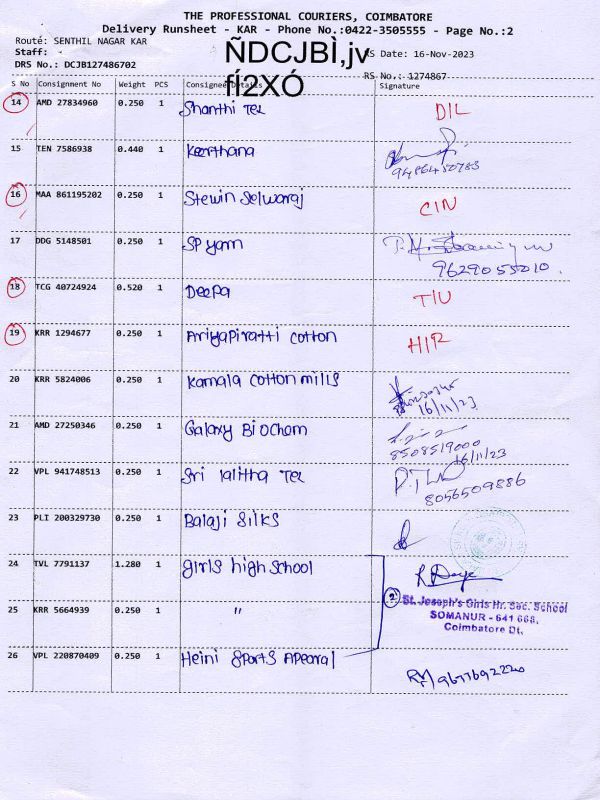 THE PROFESSIONAL COURIERS, COIMBATORE
Delivery Runsheet - KAR - Phone No.:0422-3505555 - Page No.:2
Route: SENTHIL NAGAR KAR
Staff: -
DRS No.: DCJB127486702
ÑDCJBÌ,jv
fí2XÓ
RS Date: 16-Nov-2023
RS No.: 1274867
S No Consignment No Weight PCS Consignee Details Signature
14 AMD 27834960 0.250 1 Shanthi Tex DIL
15 TEN 7586938 0.440 1 Keerthana
9486450783
16 MAA 861195202 0.250 1 Stewin Selwaraj CIN
17 DDG 5148501 0.250 1 SP yarn
9629055010.
18 TCG 40724924 0.520 1 Deepa T/U
19 KRR 1294677 0.250 1 Ariyapiratti cotton HIR
20 KRR 5824006 0.250 1 Kamala cotton mills
16/11/23
21 AMD 27250346 0.250 1 Galaxy Biochem
8508519000
16/11/23
22 VPL 941748513 0.250 1 Sri lalitha Tex
8056509886
23 PLI 200329730 0.250 1 Balaji Silks
24 TVL 7791137 1.280 1 girls high School
25 KRR 5664939 0.250 1 "
2
St. Joseph's Girls Hr. Sec. School
SOMANUR - 641 668,
Coimbatore Dt.
26 VPL 220870409 0.250 1 Heini Sports Apearal
9677692220